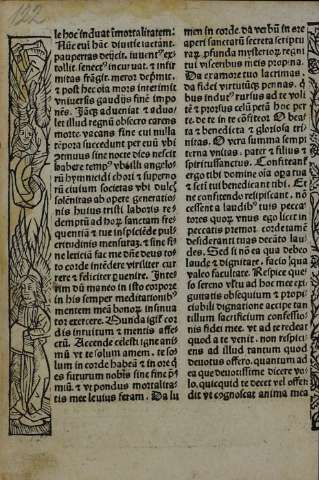 122
le hoc induat immortalitatem:
Huc eui hac diuitie iactant.
paupertas deijcit. iuuent⁹ ex
tollit. senect⁹ incuruat. et infir
mitas frāgit. meror deprimit.
et post hec oīa mors interimit
vniuersis gaudijs finē impo
nēs. adueniat et aduo
let illud regnū obscero carens
morte. vacans fine cui nulla
tēpora succedunt per euū. vbi
ptinuus sine nocte dies nescit
habere temp⁹. vbi illi angelo
rū hymnidici chori et superno
rū ciuium societas vbi dulc
solēnitas ab opere generatio
nis huius tristi laboris re
demptū ad horū sanctam fre
quentiā et tue īspiciēde pul
critudinis mensurā. et sine fi
ne leticiā fac me dñe deus to
to corde intēdere viriliter cur
rere et feliciter puenire. Inte
rim dū maneo in isto corpore
in his semper meditationib⁹
mentem meā honor insinua
tor exercere. Munda cor
dis intuitum et mentis affe
ctū. Accende celesti igne ani
mū vt te solum amem. te so
lum in corde habeā et in ore
es futurum nobis sine fine p̄
miū. et vt pondus mortalita
tis mee leuius feram. Da lu
men in corde. da verbū in ore
aperi sanctarū secreta scriptu
rarū. profunda mysteriorū regni
tui visceribus meis propina.
Da ex amore tuo lacrimas.
da fidei virtutūq; pennas. q̄
bus indut⁹ rursus ad te voli
tē et prorsus celū petā hoc per
te. de te in te cōfiteor. O bea
ta et benedicta et gloriosa tri
nitas. O vera summa sempi
terna vnitas. pater et filius et
spiritussanctus. Confiteant̄
ergo tibi domine oīa opa tua
et scti tui benedicant tibi. Et
ne confitendo respiscant. nō
cessent a laudib⁹ tuis pecca
tores quorū vnus ego licet in
peccatis premor. corde tamē
desideranti tuas decāto lau
des. Sed si nō ea qua debeo
laude et dignitate. facio qua
valeo facultate. Respice que
so sereno vltu ad hoc mee exi
guitatis obsequium et propi
ciabili dignatione accipe tan
tillum sacrificium confessio
nis fidei mee. vt ad te redeat
quod a te venit. non respici
ens ad illud tantum quod
deuotus offero. quantum ad
ea que deuotissime dicere vo
lo. quicquid te decet vel offen
dit vt cognoscat anima mea